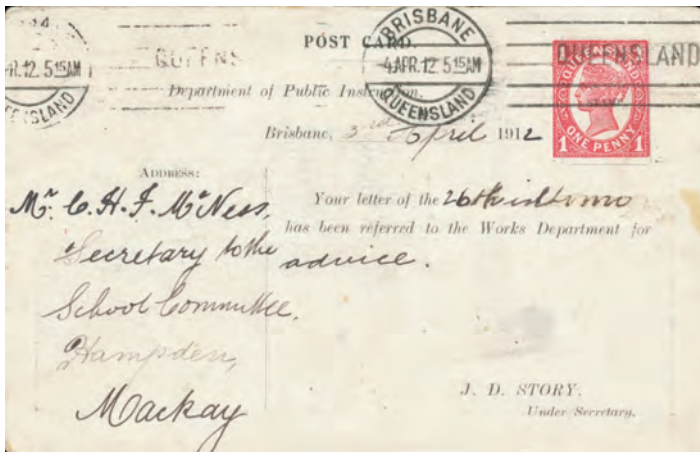 POST CARD.
BRISBANE
4 APR. 12. 5 15 AM
QUEENSLAND
R. 12. 5 15 AM
QUEENS
QUEENSLAND
QUEENSLAND
ONE PENNY
1 1
Department of Public Instruction.
Brisbane, 3rd April 1912
ADDRESS:
Mr. C. H. F. McNess,
Secretary to the
School Committee,
Hampden,
Mackay
Your letter of the 26th
has been referred to the Works Department for
advice.
J. D. STORY,
Under Secretary.